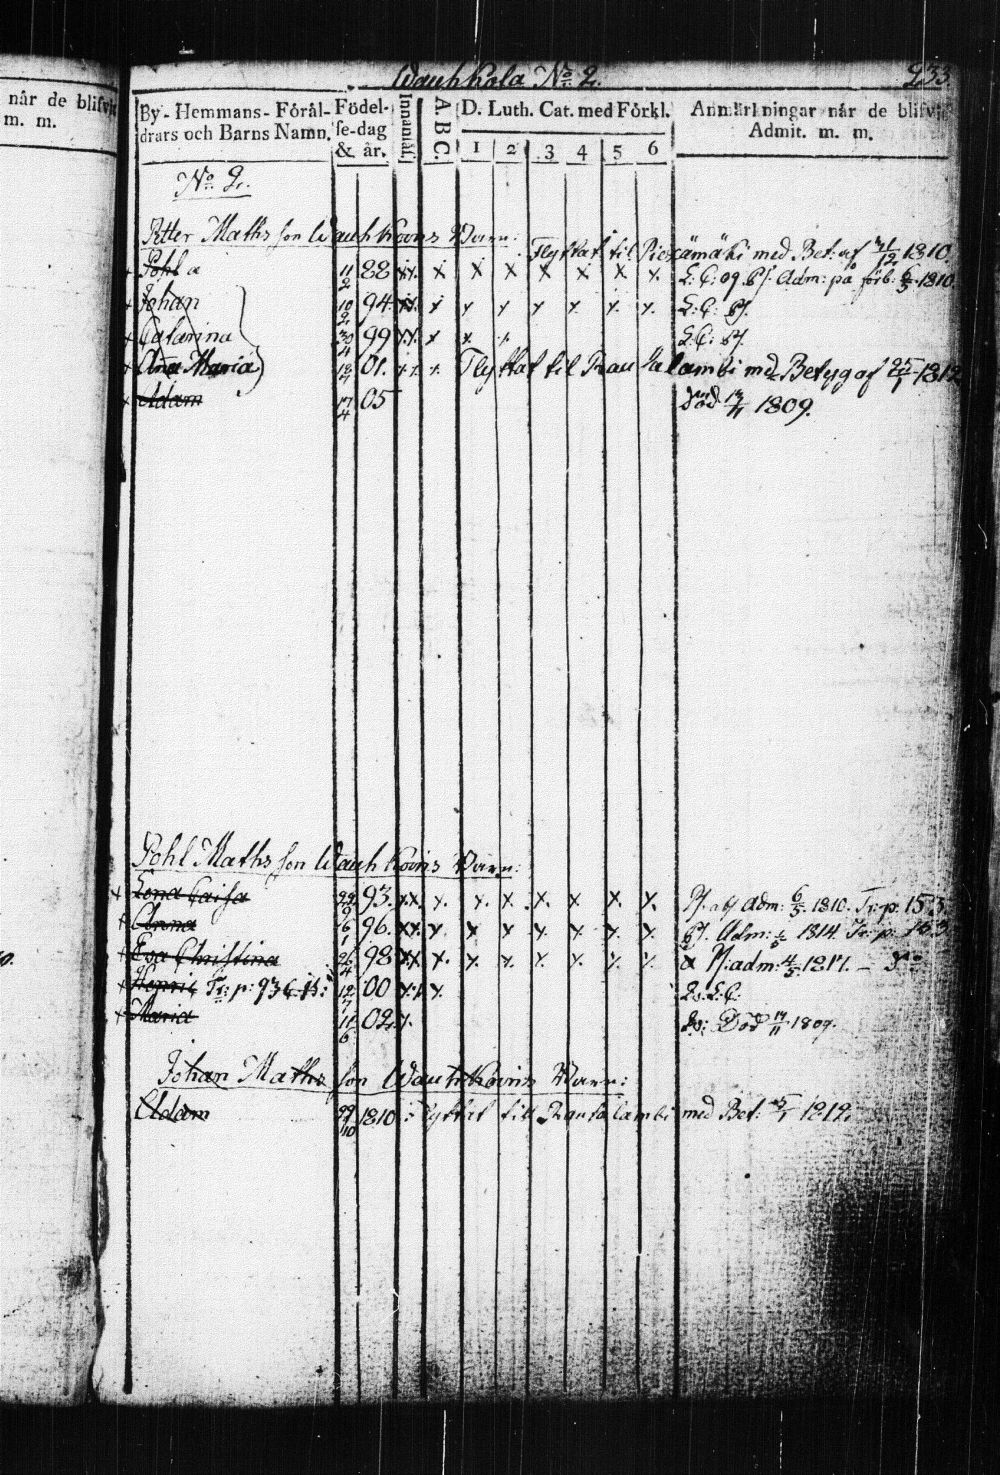 Wauhkola No. 2.
933.
når de blifvit
m. m.
By- Hemmans- Förål-
drars och Barns Namn.
Födel-
se-dag
& år.
Innanläs.
A. B. C.
D. Luth. Cat. med Förkl.
1 2 3 4 5 6
Anmärkningar når de blifvit
Admit. m. m.
No. 2.
Petter Mathsson Wauhkoins Barn:
Flyttat til Piexämäki med Bet: af 31/12 1810.
Pohl 11/2 88 x x x x x x x x x L: C: og. Sp. Adm: på förb: 6/5 1810.
Johan 10/2 94. x x x x x x x x x L: C: Sp.
Catarina 30/4 99 x x x x x L.C: Sp.
Ana Maria 18/7 01. x x x Flyttat til Rautalambi med Betyg af 25/1 1812
Adam 17/4 05 Död 13/11 1809.
Pohl Mathsson Wauhkoins Barn:
Lena Caisa 93. x x x x x x x x x Adm: 6/5 1810. Tr: p: 153.
Anna 6/1 96. x x x x x x x x x Adm: 1814. Tr: p: 153
Eva Christina 26/4 98 x x x x x x x x x adm: 4/5 1817. - Do
Henric Tr: p: 936 12/7 00 x x x L. C.
Maria 11/6 02. x. Död 17/11 1809.
Johan Mathsson Wauhkoins Barn:
Adam 29/10 1810 Flyttat till Rautalambi med Bet: 25/1 1812.